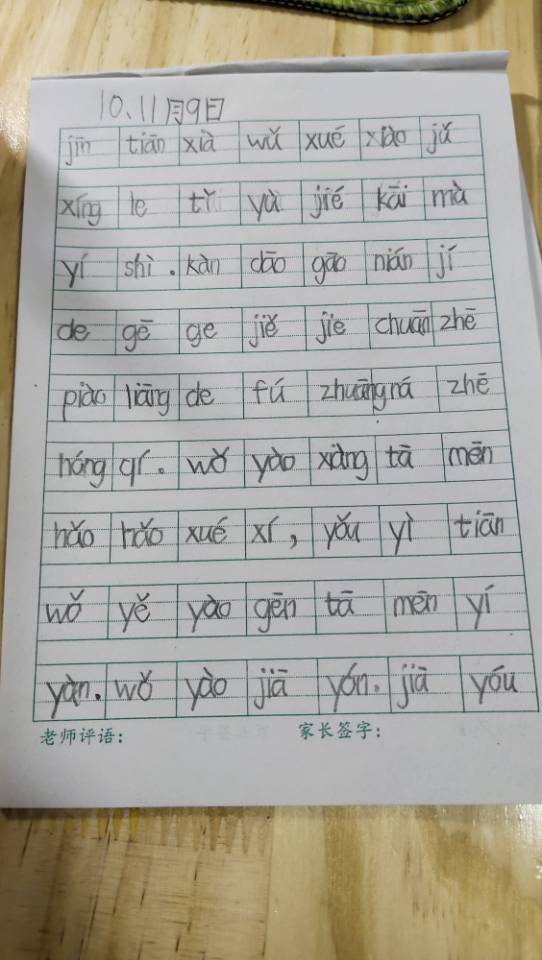 10、11月9日
jīn tiān xià wǔ xué xiào jǔ
xíng le tǐ yù jié kāi mù
yí shì . kàn dāo gāo nián jí
de gē ge jiě jie chuān zhē
piào liāng de fú zhuāng ná zhē
hóng qí . wǒ yào xiàng tā mēn
hǎo hǎo xué xí , yǒu yì tiān
wǒ yě yào gēn tā mēn yí
yàn . wǒ yào jiā yón . jiā yóu
老师评语: 家长签字: